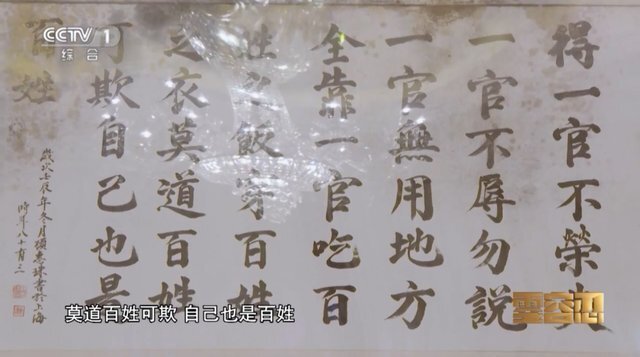 CCTV 1
综合
得一官不榮失
一官不辱勿說
一官無用地方
全靠一官吃百
姓之飯穿百姓
之衣莫道百姓
可欺自己也是
百姓
歲次壬辰年冬月惠珠書於上海
時年八十有三
莫道百姓可欺 自己也是百姓